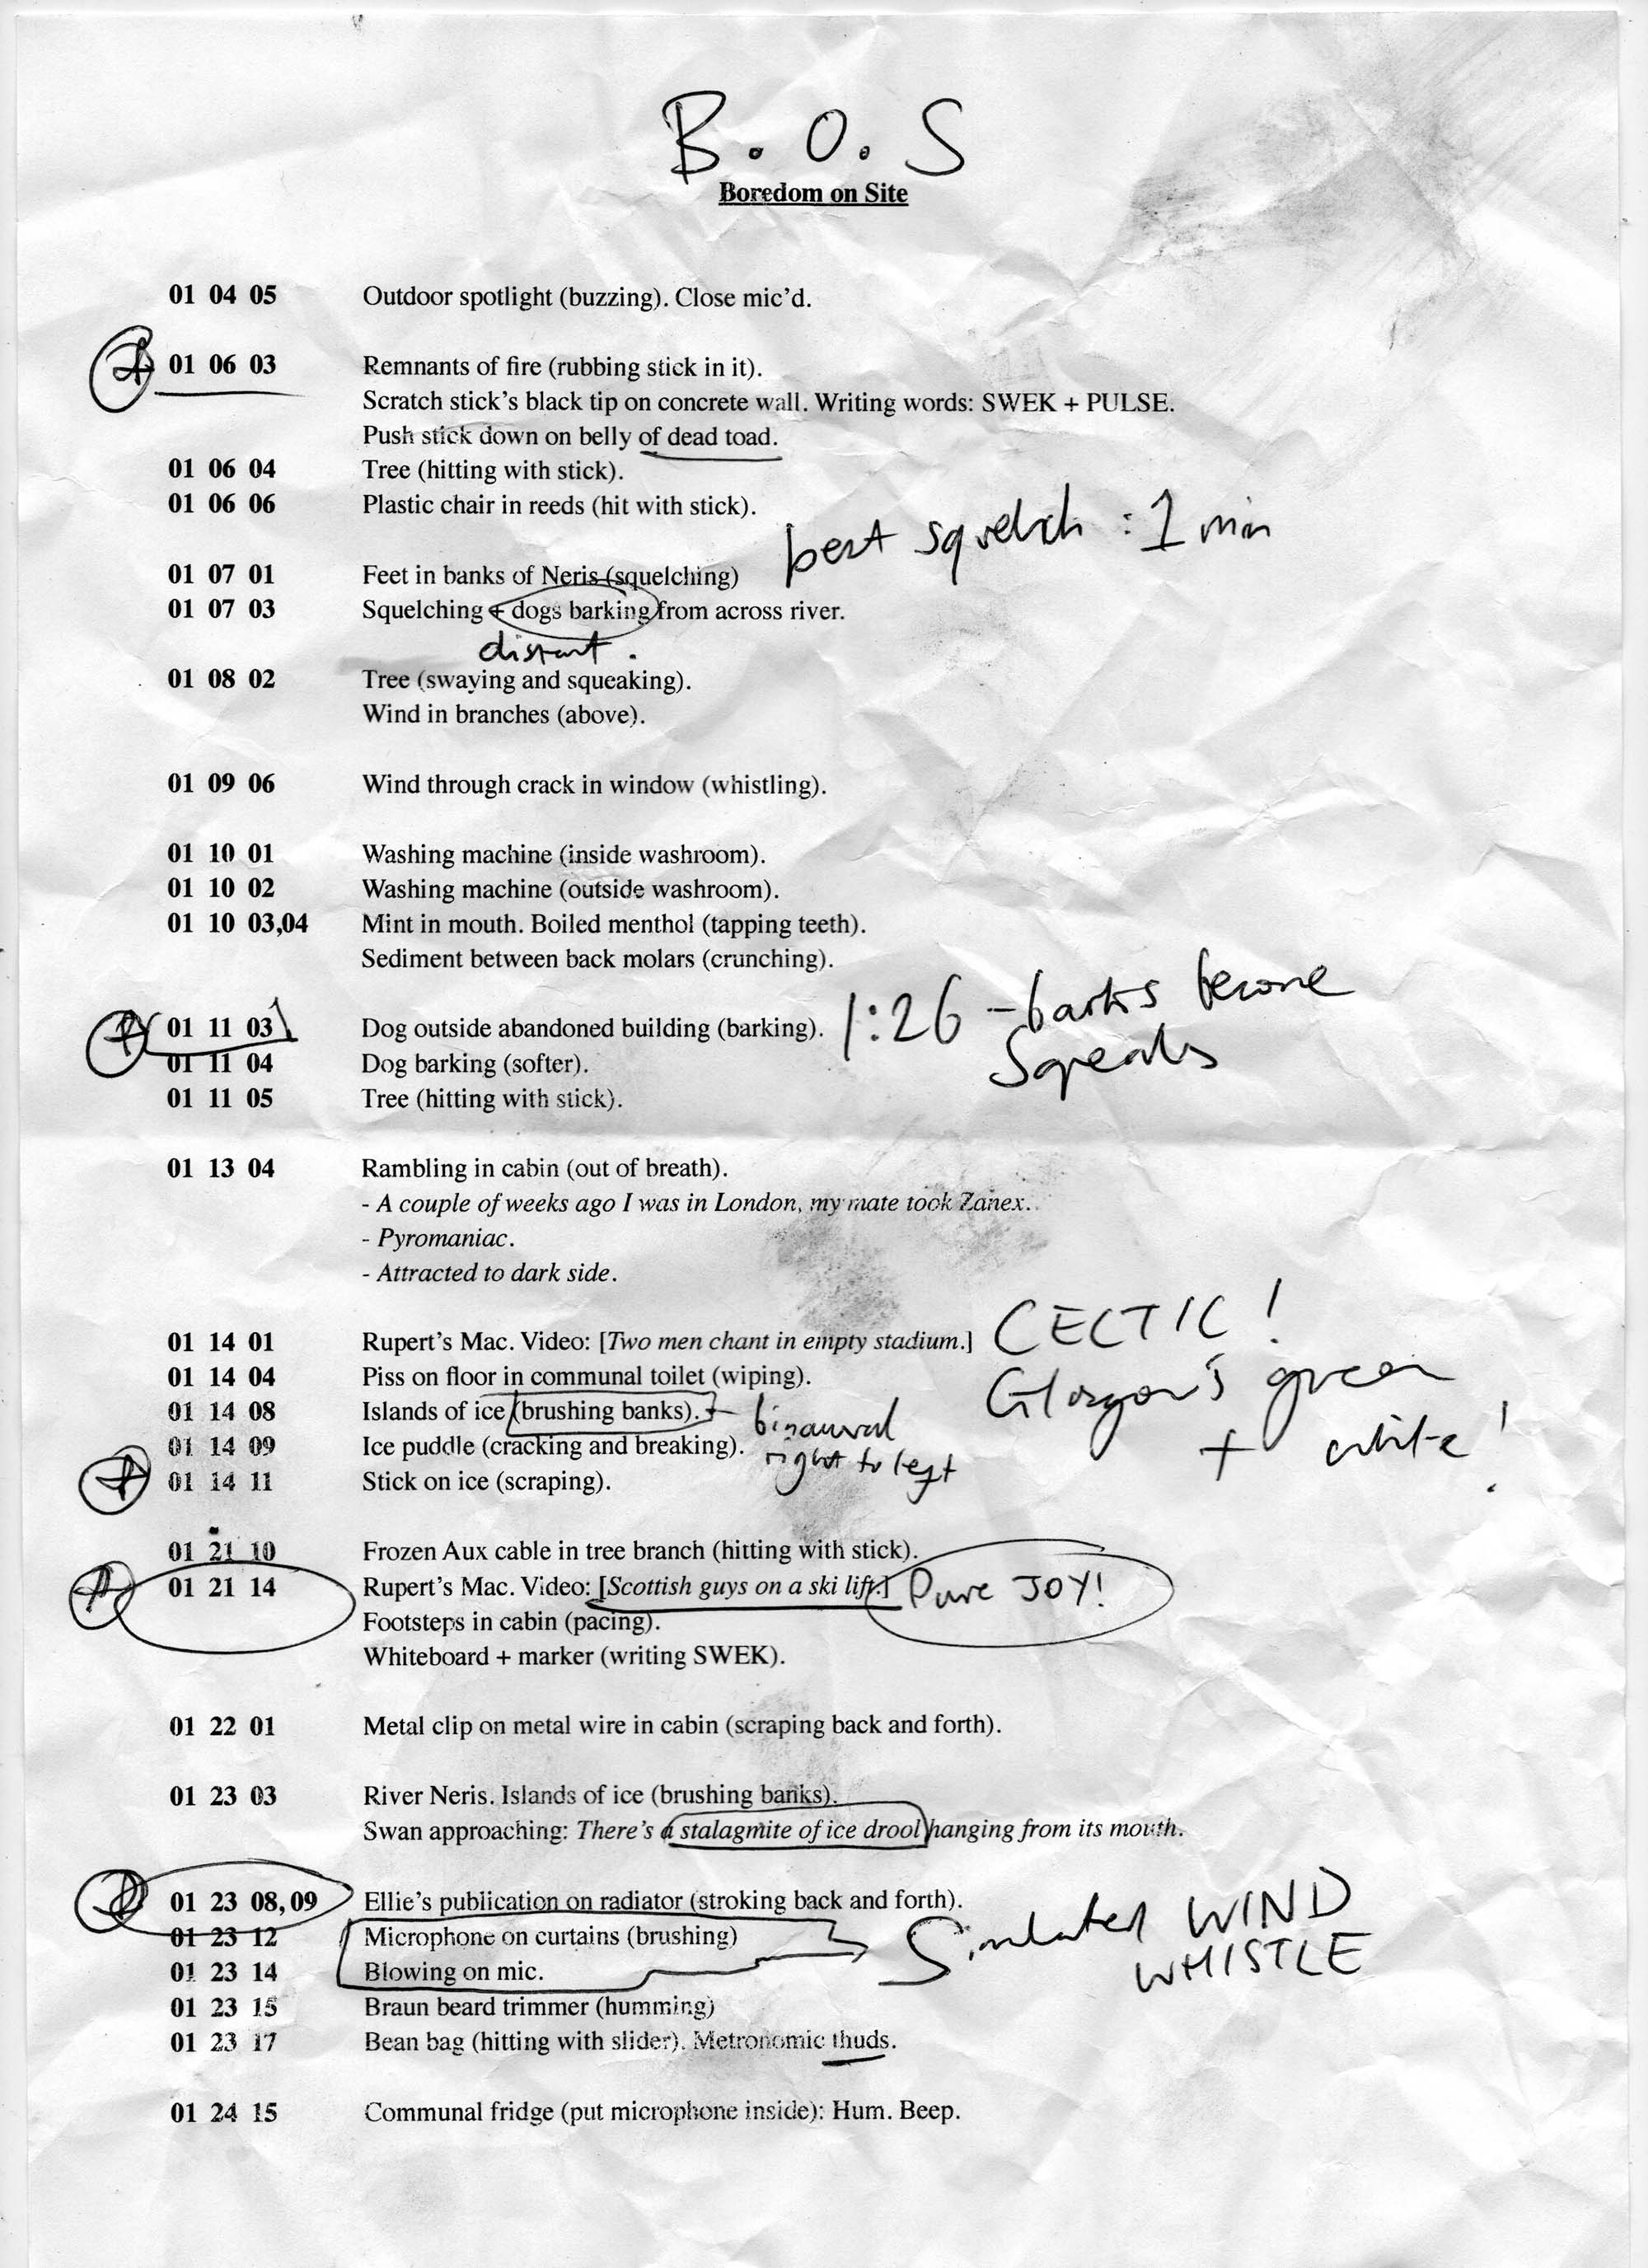 B. O. S
Boredom on Site
01 04 05 Outdoor spotlight (buzzing). Close mic'd.
01 06 03 Remnants of fire (rubbing stick in it).
Scratch stick's black tip on concrete wall. Writing words: SWEK + PULSE.
Push stick down on belly of dead toad.
01 06 04 Tree (hitting with stick).
01 06 06 Plastic chair in reeds (hit with stick).
best squelch : 1 min
01 07 01 Feet in banks of Neris (squelching)
01 07 03 Squelching + dogs barking from across river.
distant.
01 08 02 Tree (swaying and squeaking).
Wind in branches (above).
01 09 06 Wind through crack in window (whistling).
01 10 01 Washing machine (inside washroom).
01 10 02 Washing machine (outside washroom).
01 10 03,04 Mint in mouth. Boiled menthol (tapping teeth).
Sediment between back molars (crunching).
01 11 03 Dog outside abandoned building (barking). 1:26 - barks become
squeals
01 11 04 Dog barking (softer).
01 11 05 Tree (hitting with stick).
01 13 04 Rambling in cabin (out of breath).
- A couple of weeks ago I was in London, my mate took Zanex.
- Pyromaniac.
- Attracted to dark side.
01 14 01 Rupert's Mac. Video: [Two men chant in empty stadium.] CECTIC!
Glasgow's green
+ white!
01 14 04 Piss on floor in communal toilet (wiping).
01 14 08 Islands of ice (brushing banks). binaural
right to left
01 14 09 Ice puddle (cracking and breaking).
01 14 11 Stick on ice (scraping).
01 21 10 Frozen Aux cable in tree branch (hitting with stick).
01 21 14 Rupert's Mac. Video: [Scottish guys on a ski lift.] Pure JOY!
Footsteps in cabin (pacing).
Whiteboard + marker (writing SWEK).
01 22 01 Metal clip on metal wire in cabin (scraping back and forth).
01 23 03 River Neris. Islands of ice (brushing banks).
Swan approaching: There's a stalagmite of ice drool hanging from its mouth.
01 23 08,09 Ellie's publication on radiator (stroking back and forth).
01 23 12 Microphone on curtains (brushing) Simulated WIND
WHISTLE
01 23 14 Blowing on mic.
01 23 15 Braun beard trimmer (humming)
01 23 17 Bean bag (hitting with slider). Metronomic thuds.
01 24 15 Communal fridge (put microphone inside): Hum. Beep.